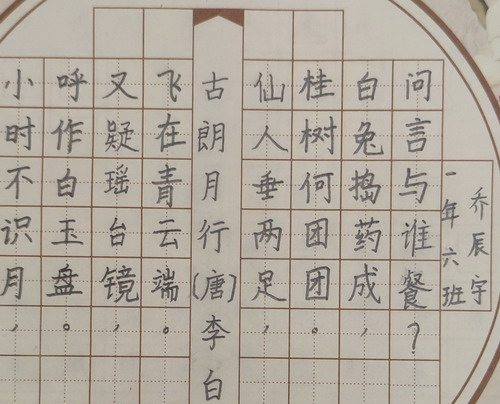 小时不识月，
呼作白玉盘。
又疑瑶台镜，
飞在青云端。
古朗月行(唐)李白
仙人垂两足，
桂树何团团。
白兔捣药成，
问言与谁餐？
一年六班
乔辰宇